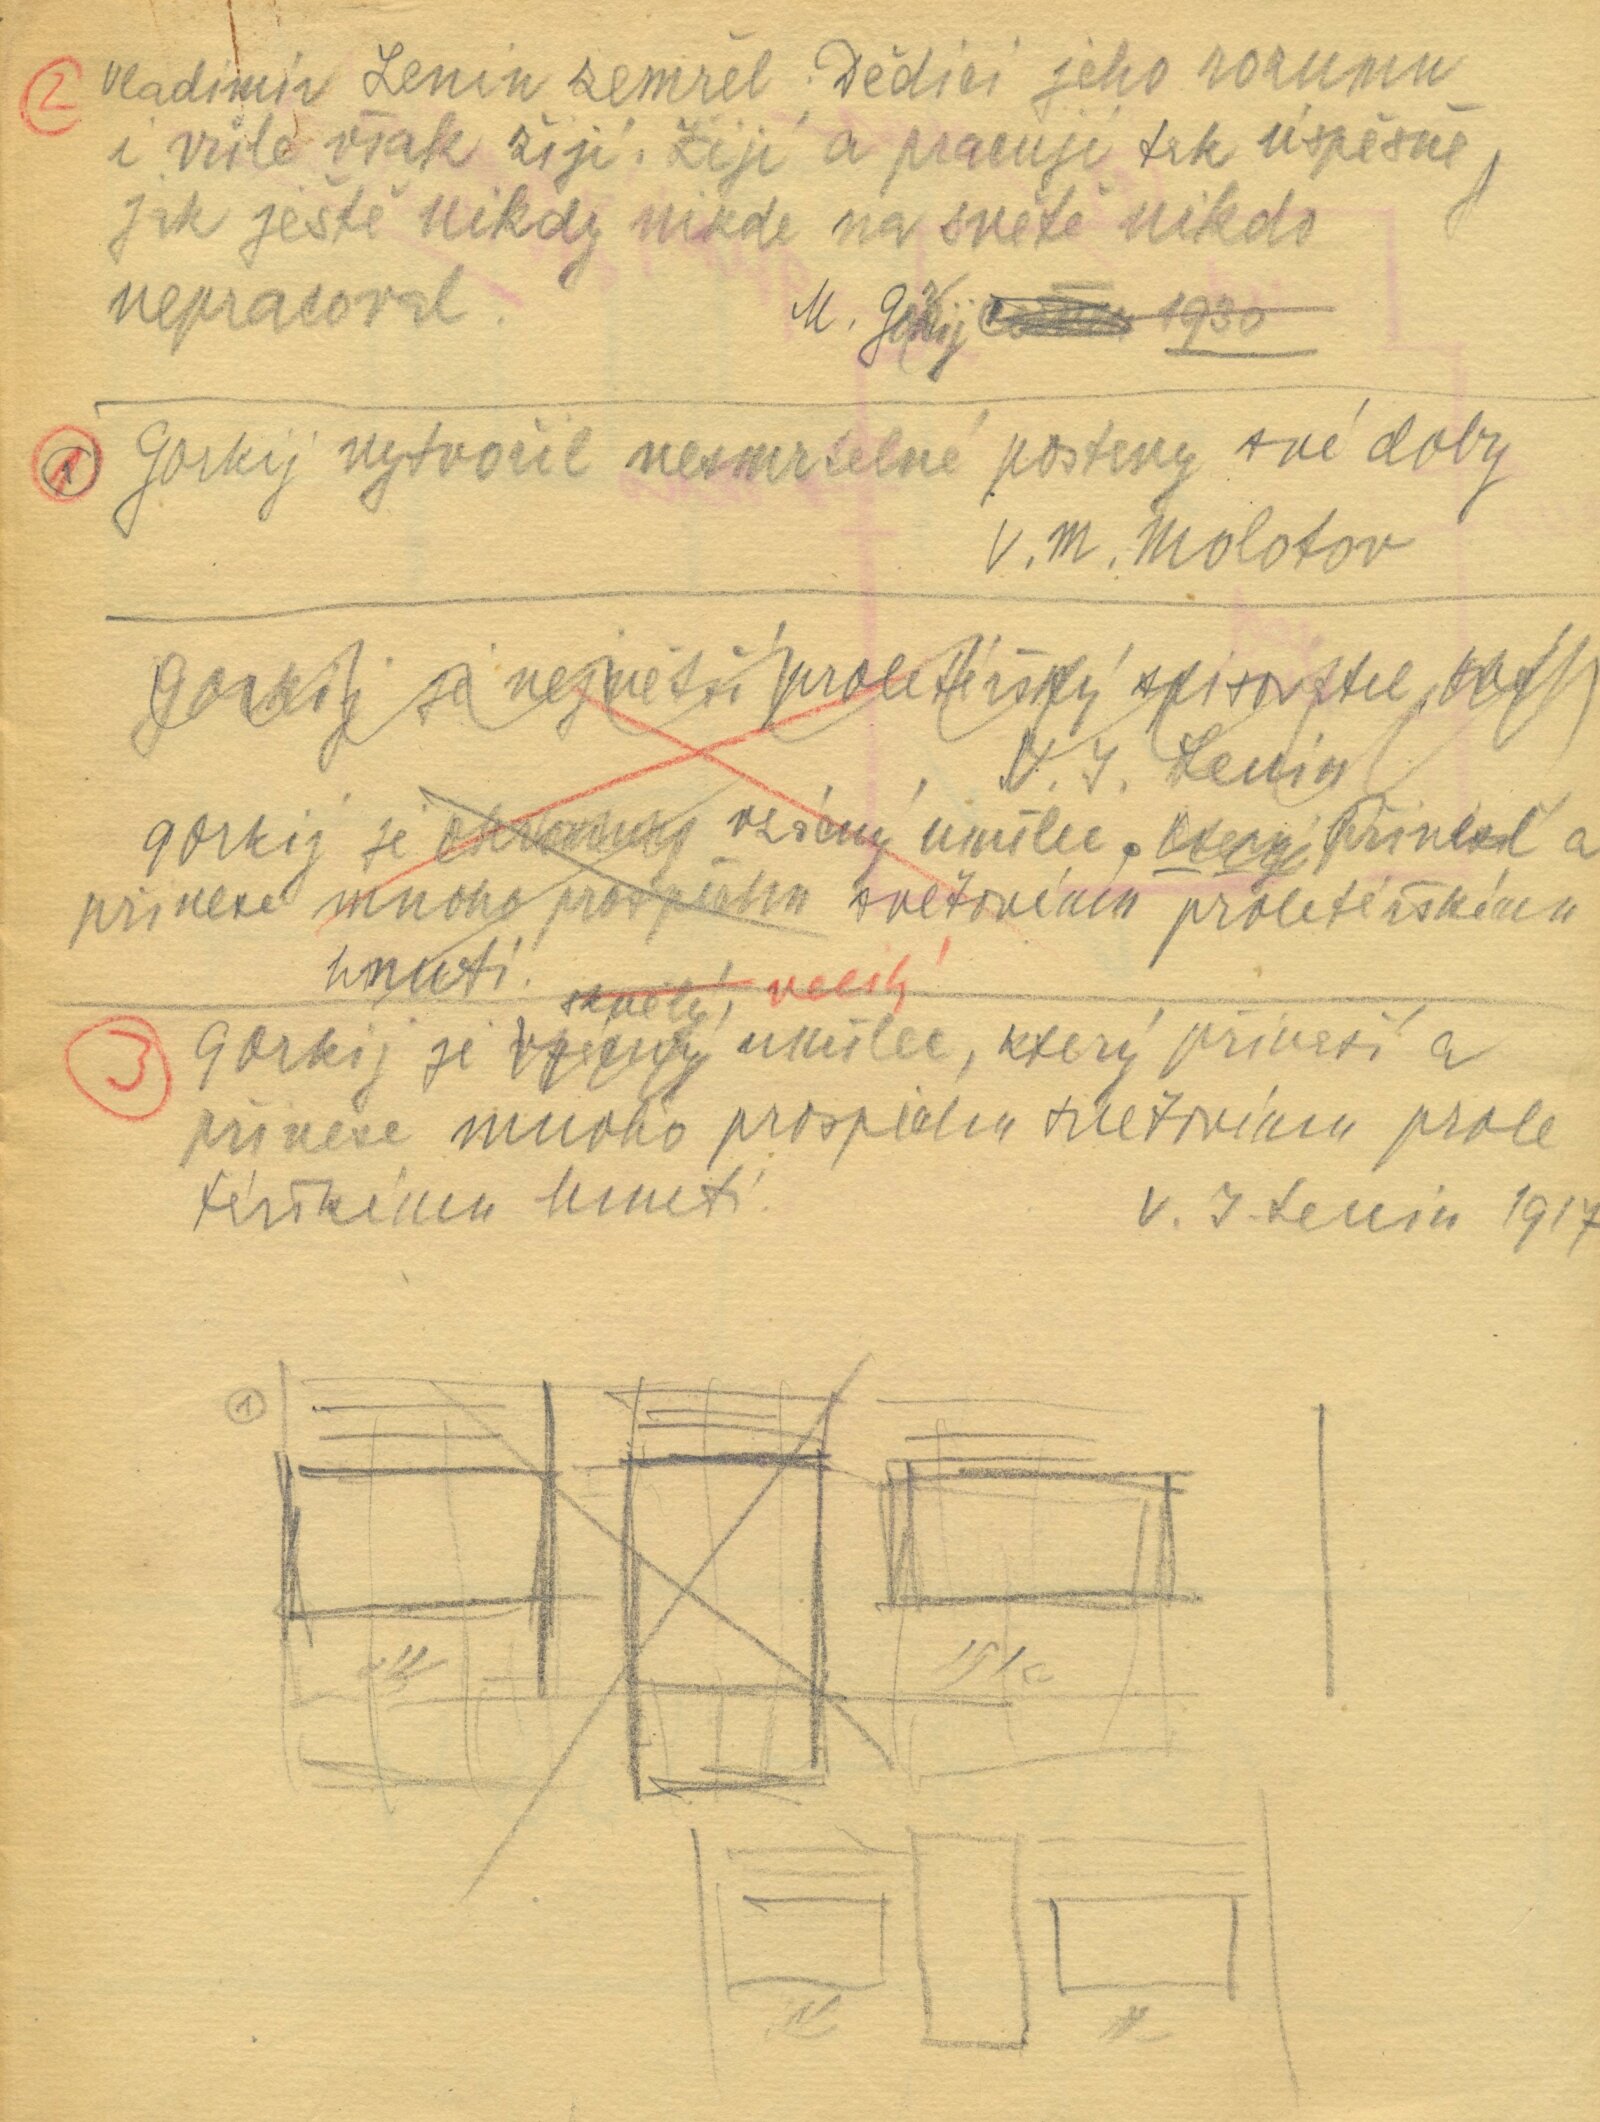 2 Vladimir Lenin zemřel. Dědici jeho rozumu
i vůle však žijí. Žijí a pracují tak úspěšně,
jak ještě nikdy nikde na světě nikdo
nepracoval.
M. Gorkij 1930
1 Gorkij vytvořil nesmrtelné postavy své doby
V. M. Molotov
Gorkij je největší proletářský spisovatel,
V. I. Lenin
Gorkij je vzácný umělec. který přinesl a
přinese mnoho prospěchu světovému proletářskému
hnutí.
skvělý, veliký
3 Gorkij je vzácný umělec, který přinesl a
přinese mnoho prospěchu světovému prole
tářskému hnutí.
V. I. Lenin 1917
1